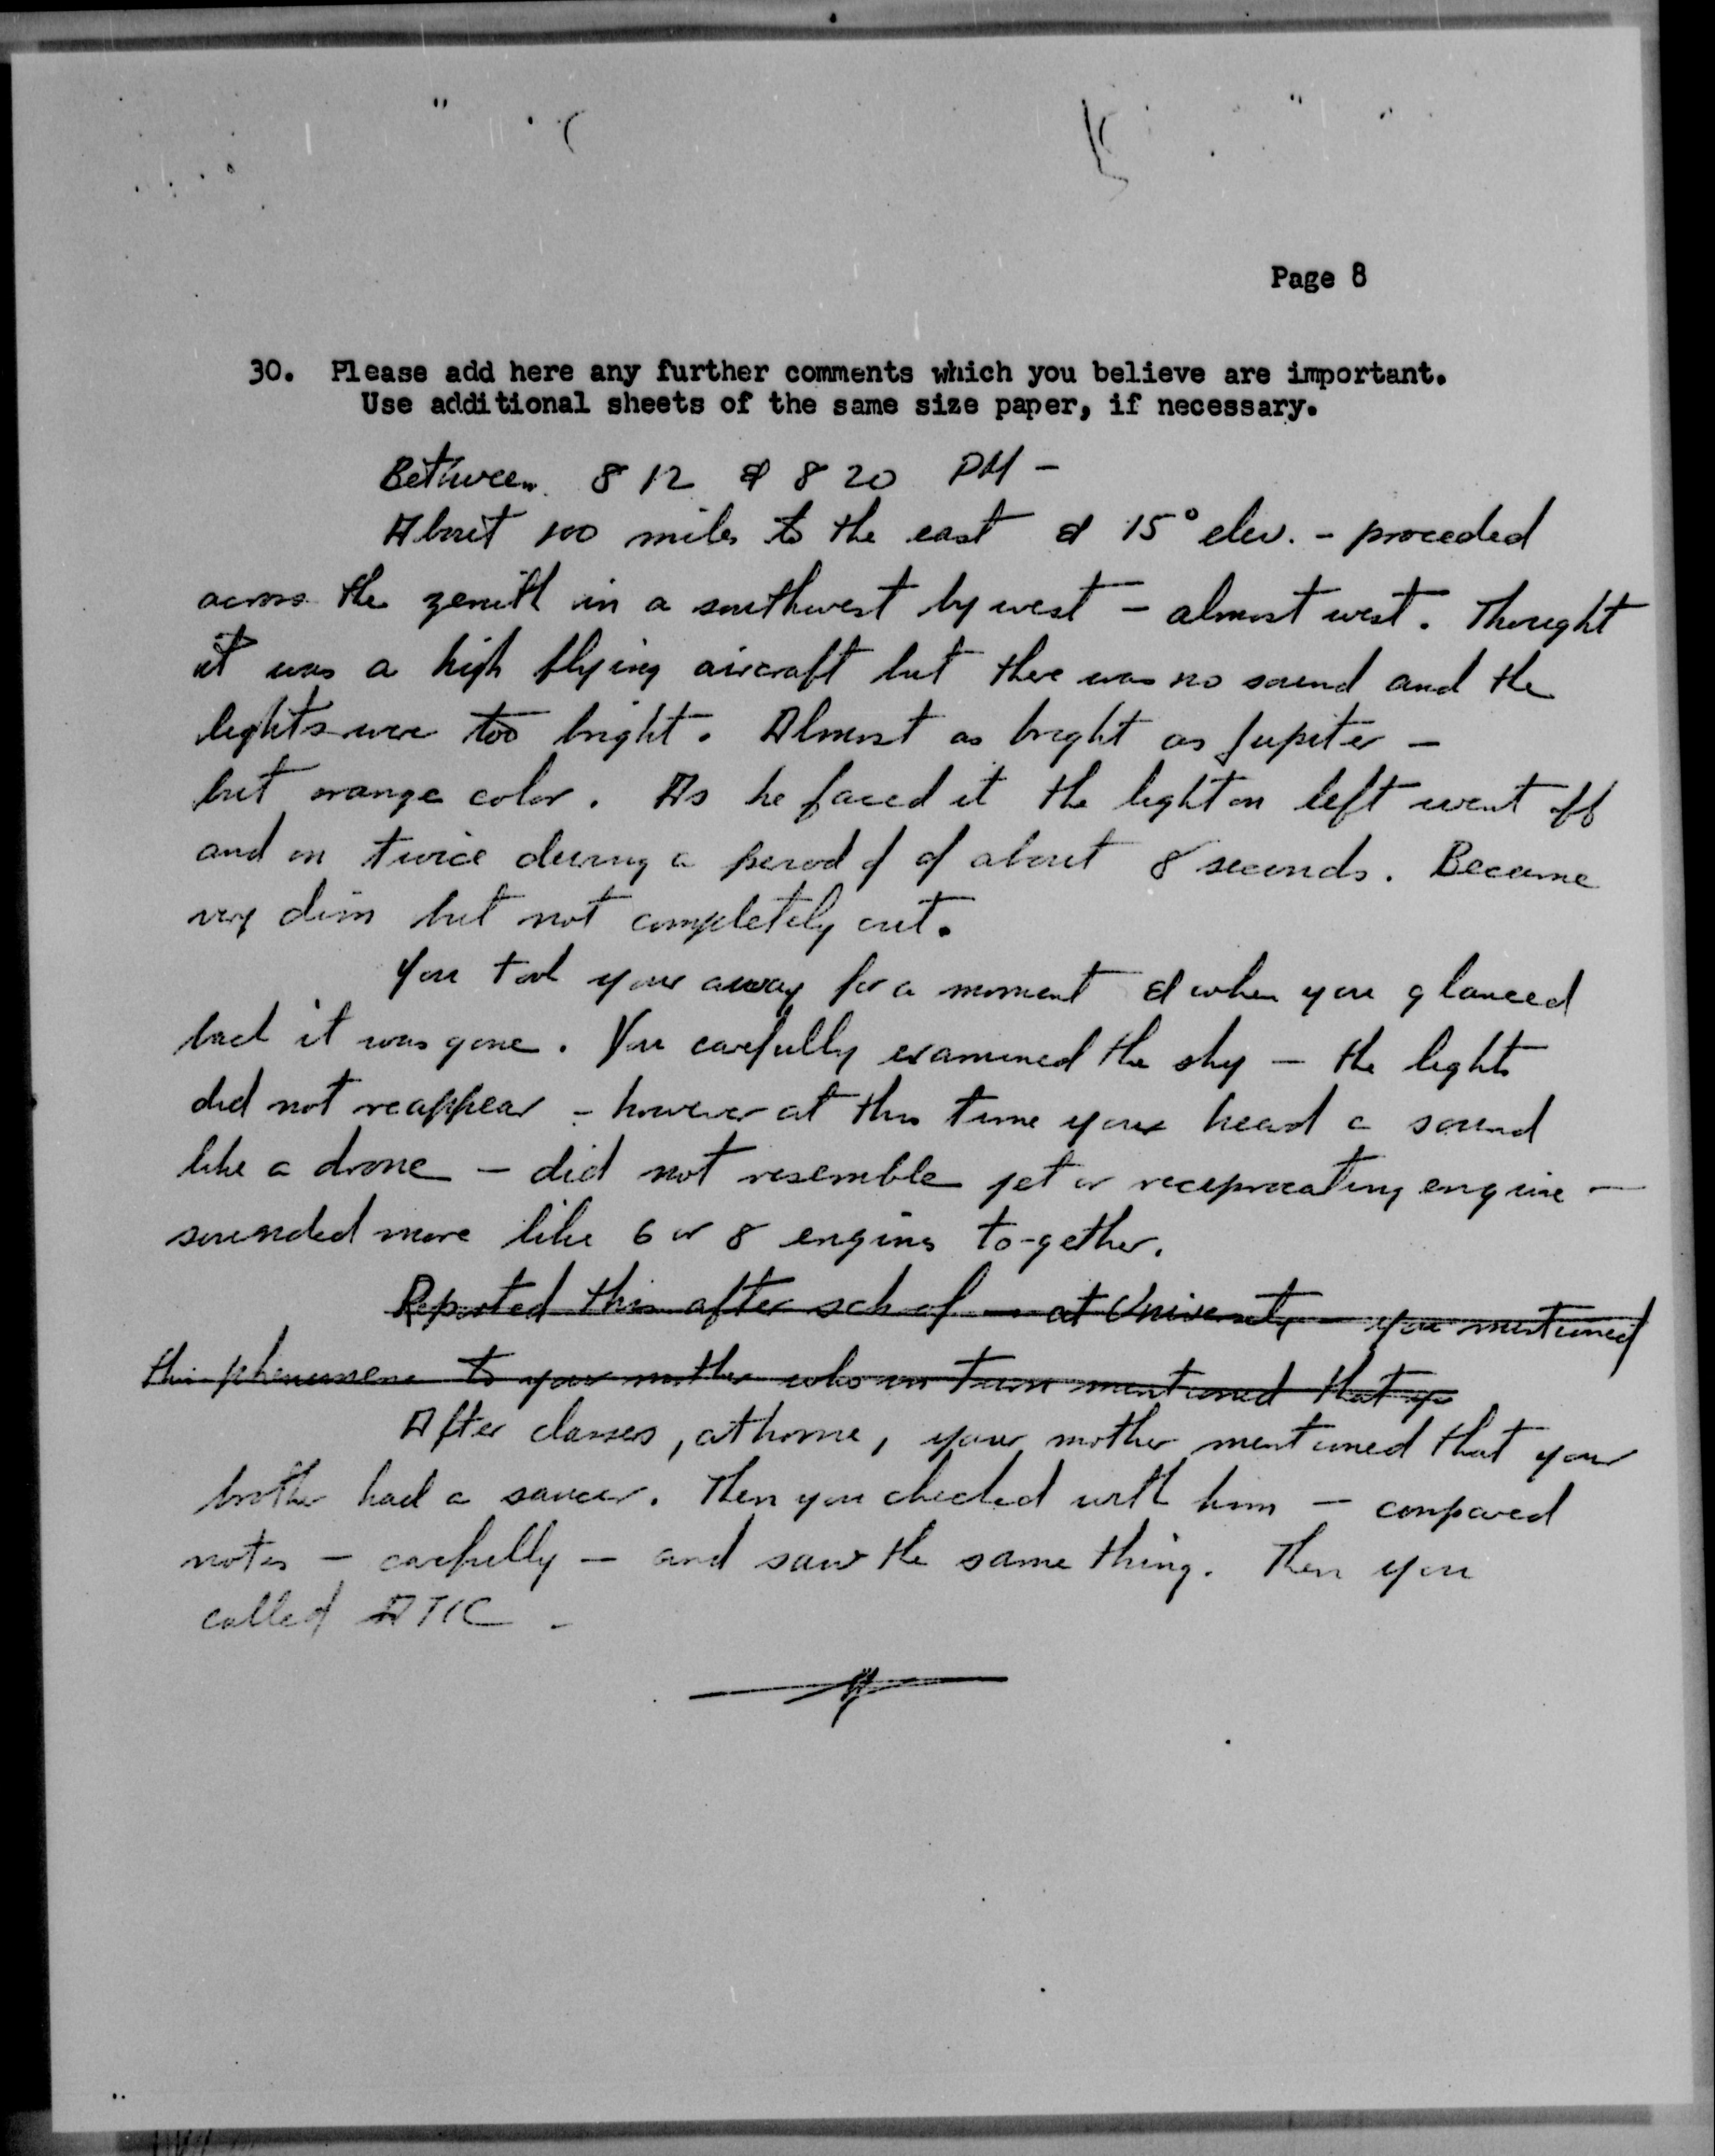 Page 8
30. Please add here any further comments which you believe are important.
Use additional sheets of the same size paper, if necessary.
Between 8 12 & 8 20 PM -
About 100 miles to the east & 15° elev. - proceded
across the zenith in a southwest by west - almost west. Thought
it was a high flying aircraft but there was no sound and the
lights were too bright. Almost as bright as Jupiter -
but orange color. As he faced it the light on left went off
and on twice during a period of of about 8 seconds. Became
very dim but not completely out.
You took your away for a moment & when you glanced
back it was gone. You carefully examined the sky - the lights
did not reappear - however at this time your heard a sound
like a drone - did not resemble jet or reciprocating engine -
sounded more like 6 or 8 engines to-gether.
Reported this after school - at University - you mentioned
this phenomena to your mother who in turn mentioned that yo
After classes, at home, your mother mentioned that your
brother had a saucer. Then you checked with him - compared
notes - carefully - and saw the same thing. Then you
called ATIC -